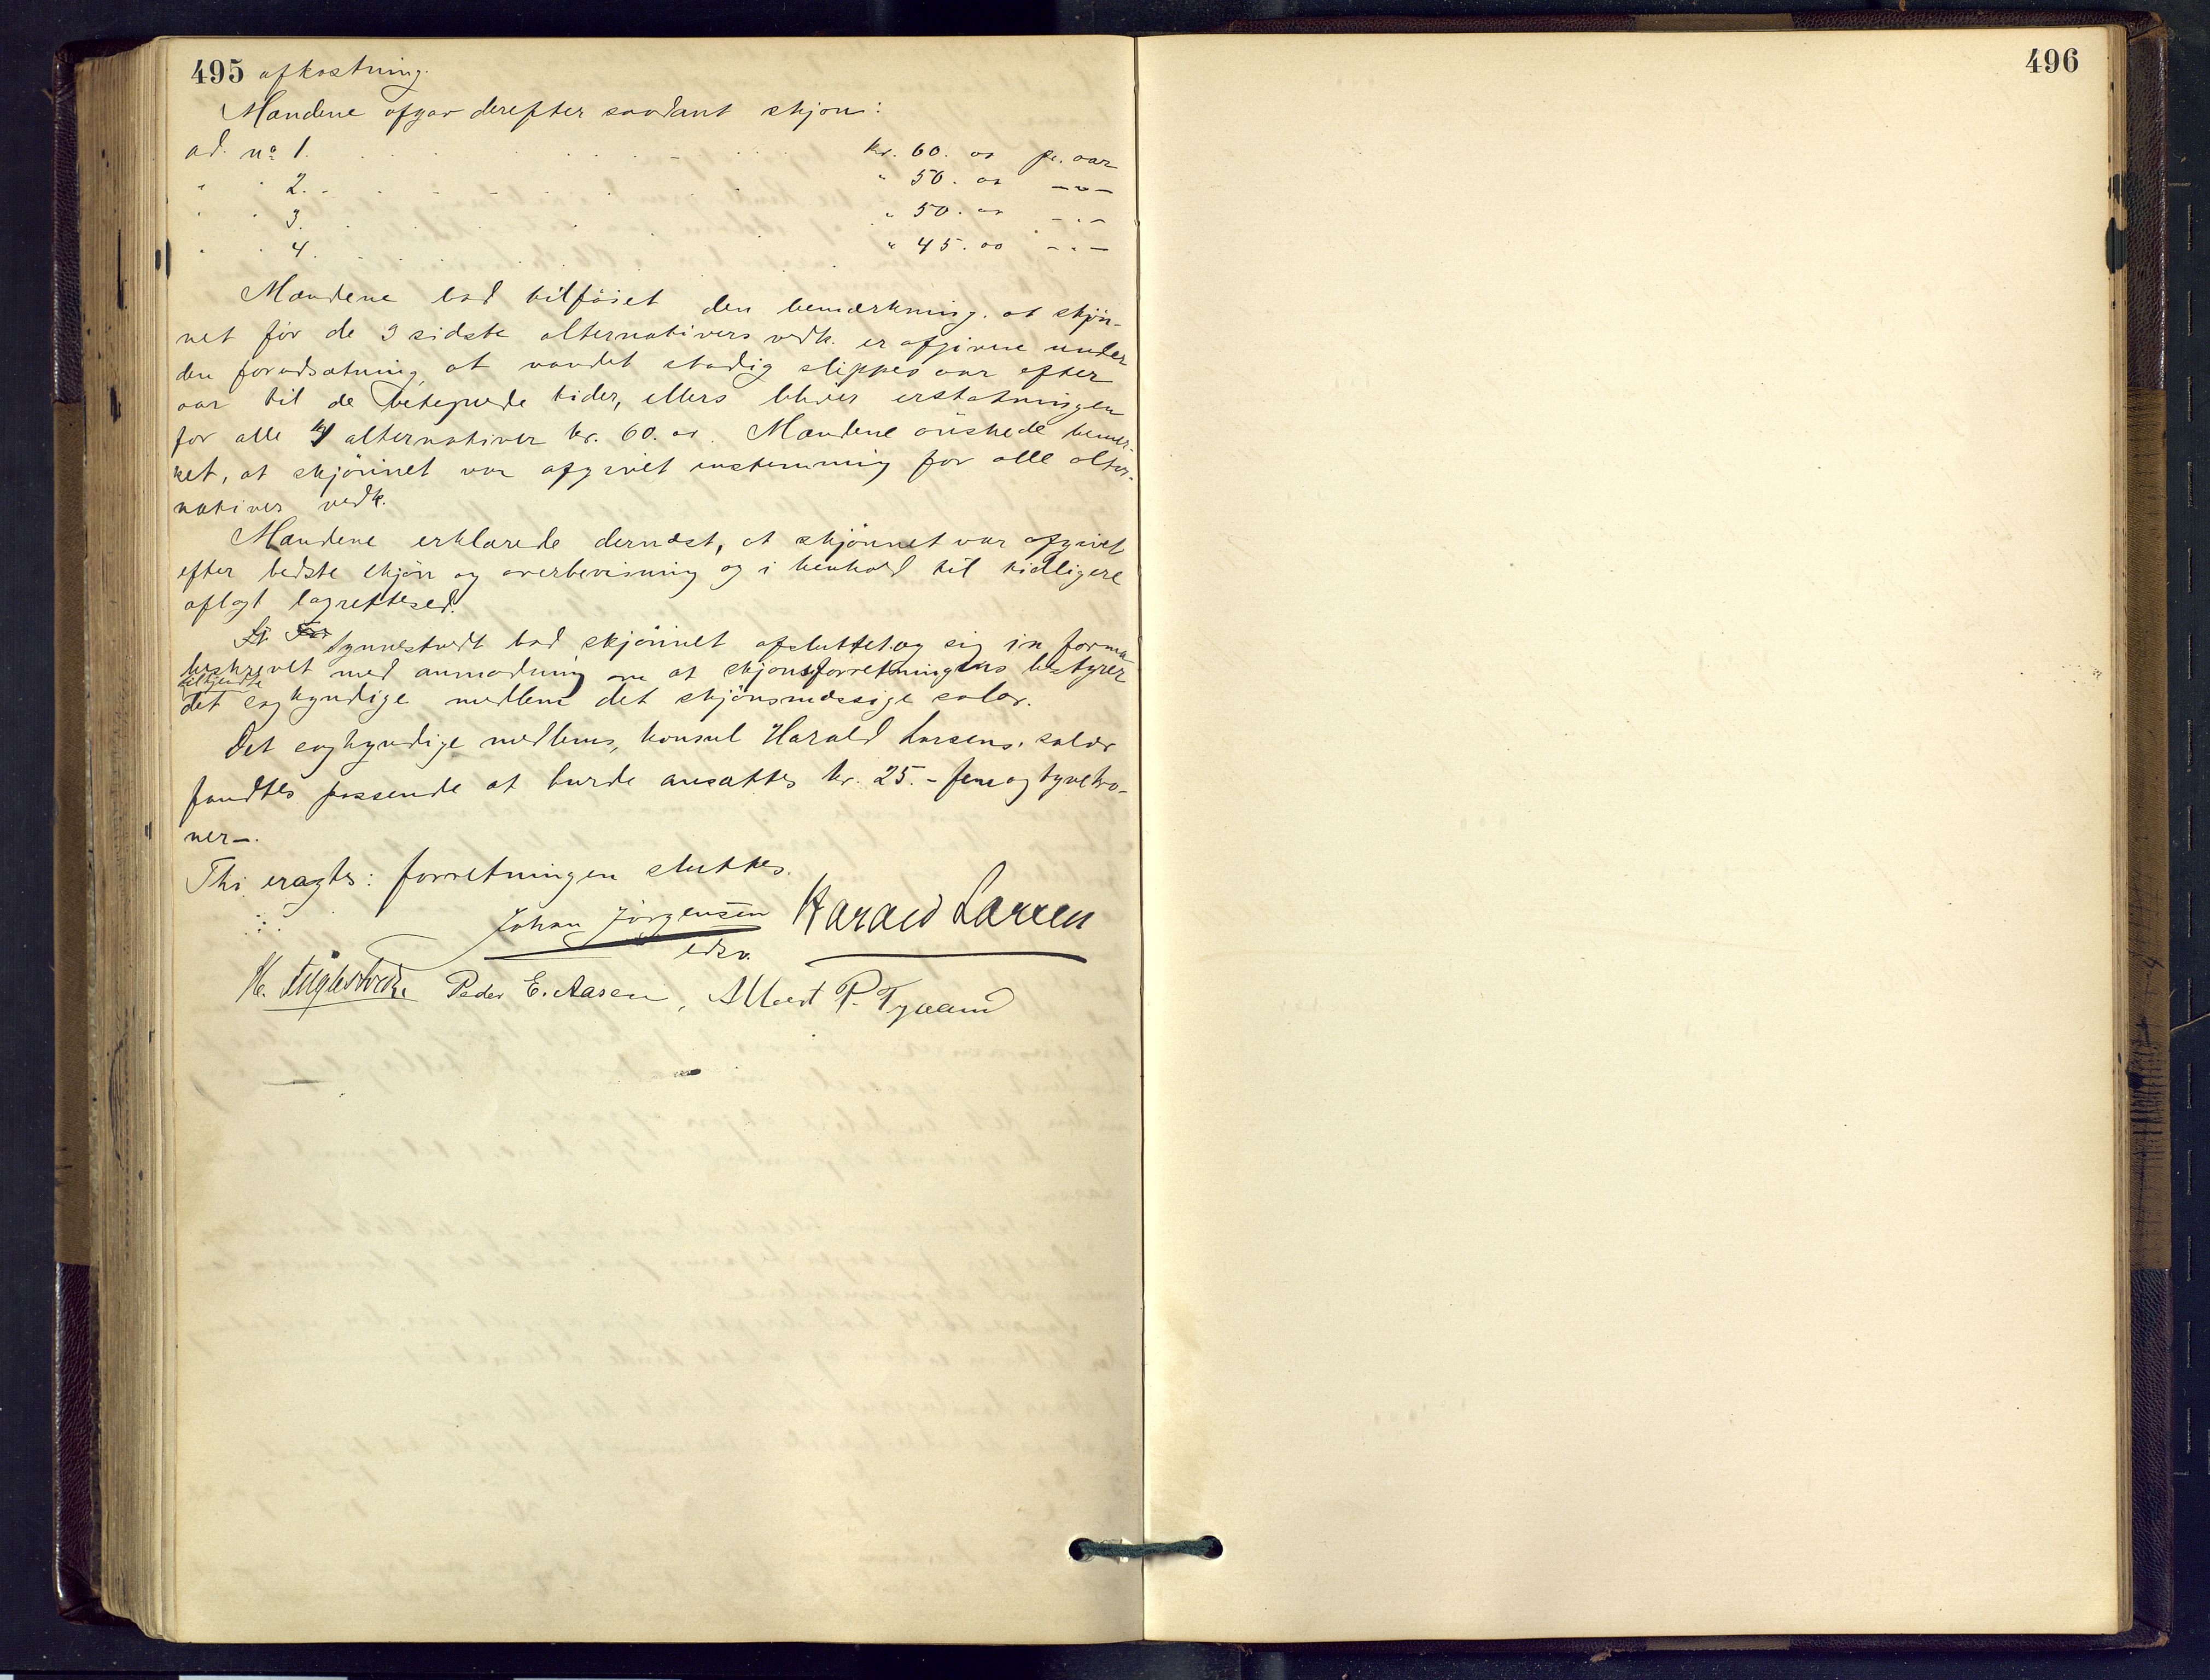 495 afkastning.
Mændene afgav derefter saadant skjøn:
ad. no 1. kr. 60. oo pr. aar
" " 2. " 50. oo -"-
" " 3. " 50. oo -"-
" " 4. " 45. oo -"-
Mændene bad tilföiet den bemærkning. at skjön-
net för de 3 sidste alternativers vedk. er afgivne under
den forudsætning at vandet stadig slippes aar efter
aar til de betegnede tider, ellers bliver erstatningen
for alle 4 alternativer kr. 60. oo. Mændene önskede bemær-
ket, at skjönnet var afgivet enstemmig for alle alter-
nativers vedk.
Mændene erklærede dernæst, at skjönnet var afgivet
efter bedste skjön og overbevisning og i henhold til tidligere
aflagt lagrettesed.
Synnestvedt bad skjönnet afsluttet og sig in forma
beskrevet med anmodning om at skjønsforretningens bestyrer
tilkjendte
det sagkyndige medlem det skjönsmæssige salær.
Det sagkyndige medlems, konsul Harald Larsens, salær
fandtes passende at burde ansættes kr. 25.- fem og tyve kro-
ner-.
Thi eragtes: forretningen sluttes.
Johan Jörgensen Harald Larsen
edsv.
Peder E. Aasen, Albert P. Tveaand
496